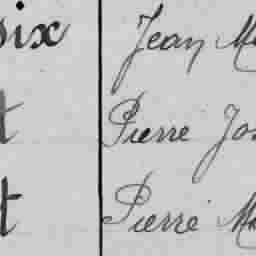 six Jean Ma
t Pierre Jos
t Pierre Ma